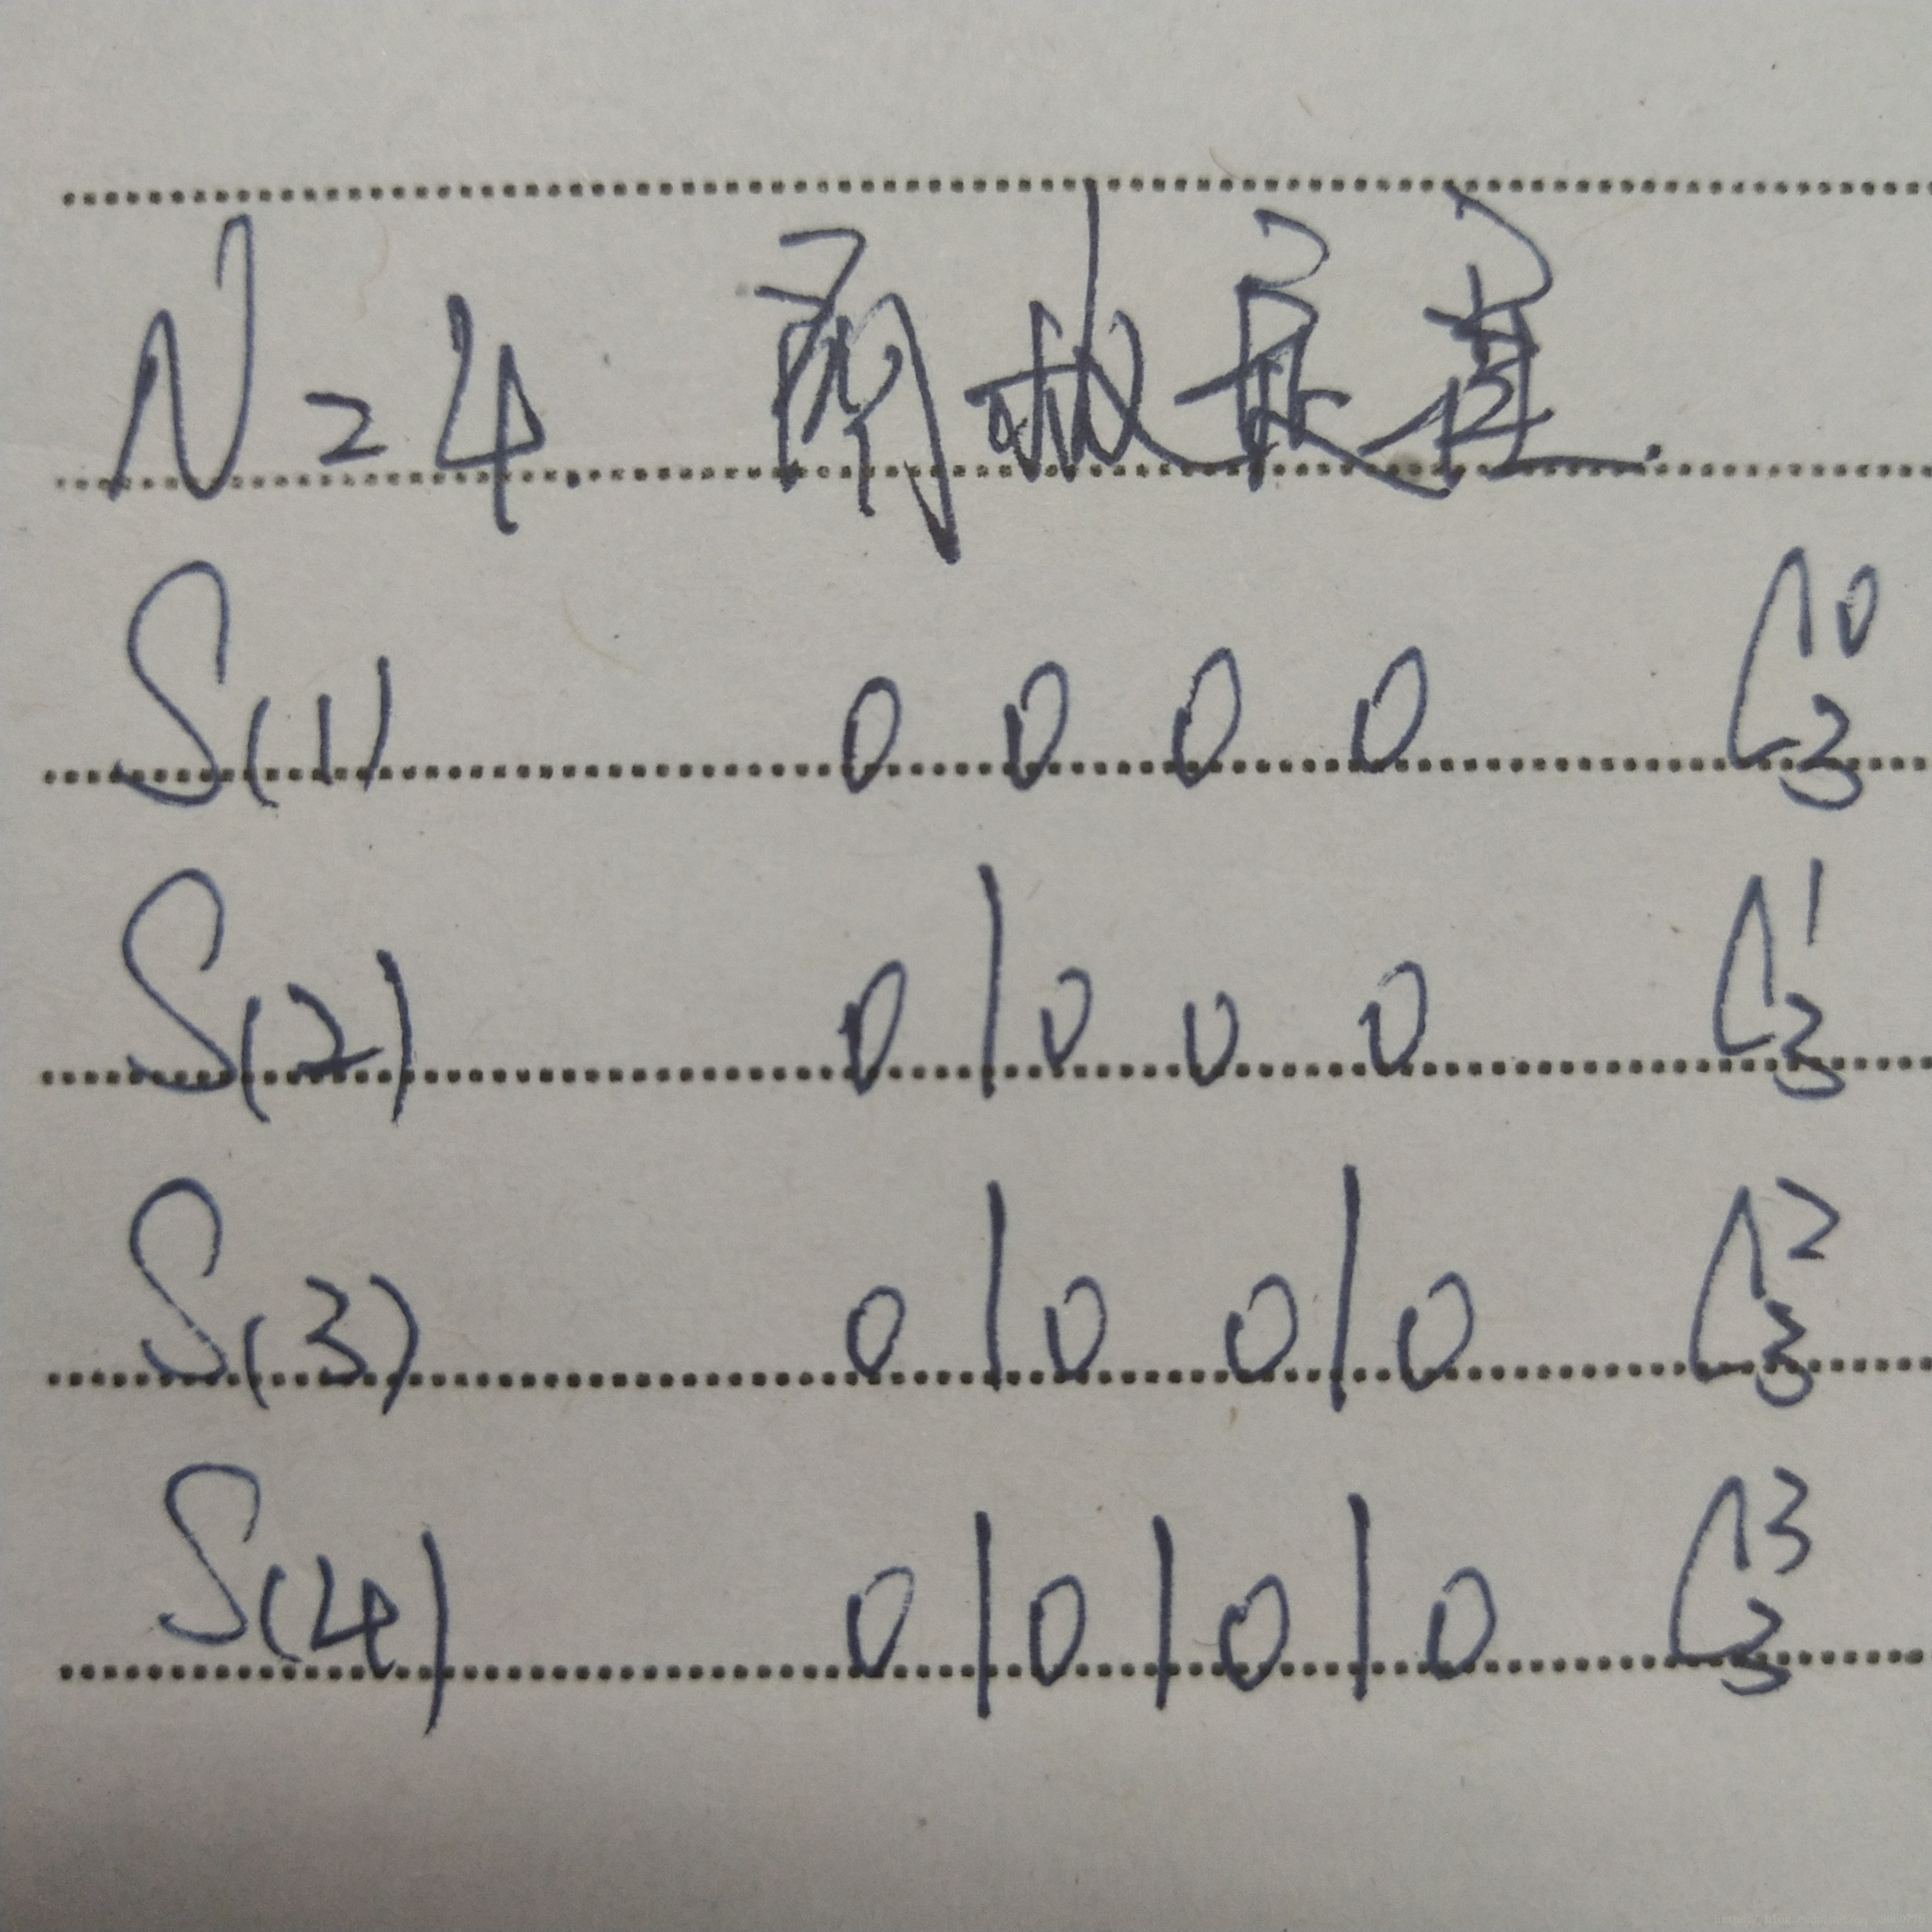 N=4. 隔板展连.
S(1) 0 0 0 0 C_3^0
S(2) 0 | 0 0 0 C_3^1
S(3) 0 | 0 0 | 0 C_3^2
S(4) 0 | 0 | 0 | 0 C_3^3